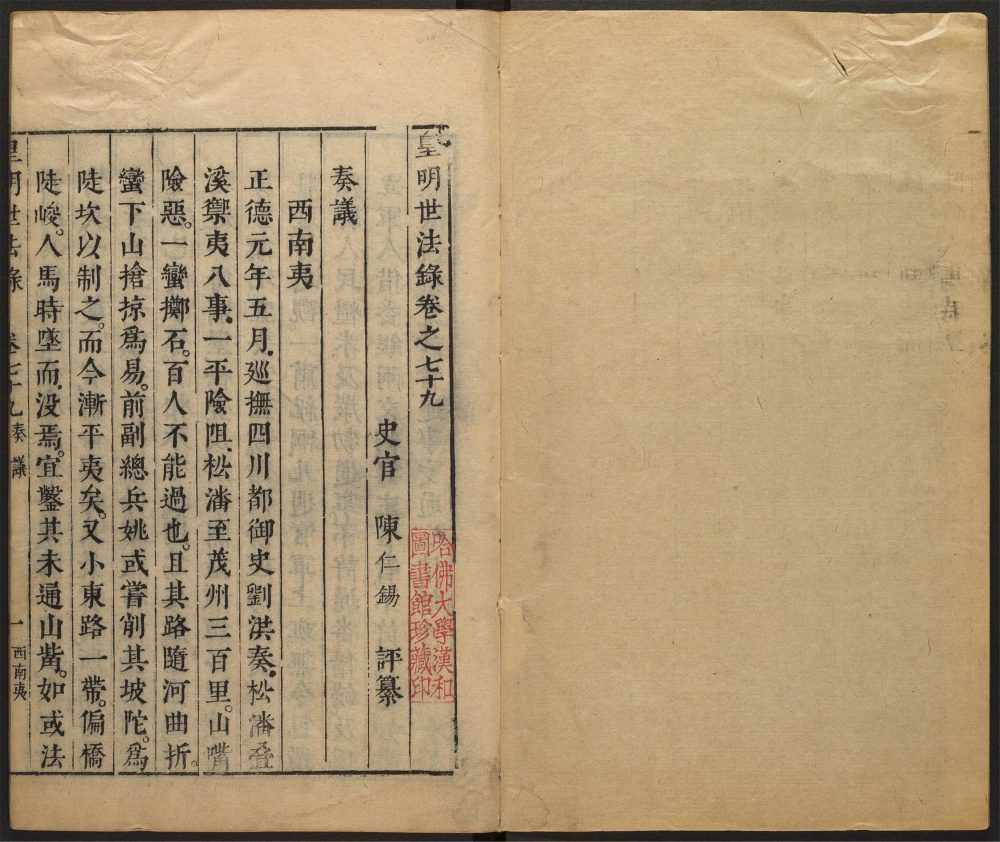 皇明世法錄卷之七十九
史官 陳仁錫 評纂
哈佛大學漢和
圖書館珍藏印
奏議
西南夷
正德元年五月巡撫四川都御史劉洪奏松潘疊
溪禦夷八事一平險阻松潘至茂州三百里山嘴
險惡一蠻擲石百人不能過也且其路隨河曲折
蠻下山搶掠爲易前副總兵姚或嘗削其坡陀爲
陡坎以制之而今漸平夷矣又小東路一帶偏橋
陡峻人馬時墜而没焉宜鑿其未通山觜如或法
皇明世法錄 卷七十九 奏議 一 西南夷